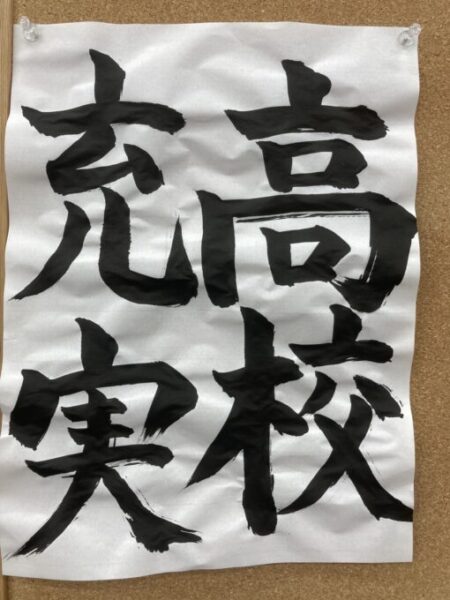 高校
充実